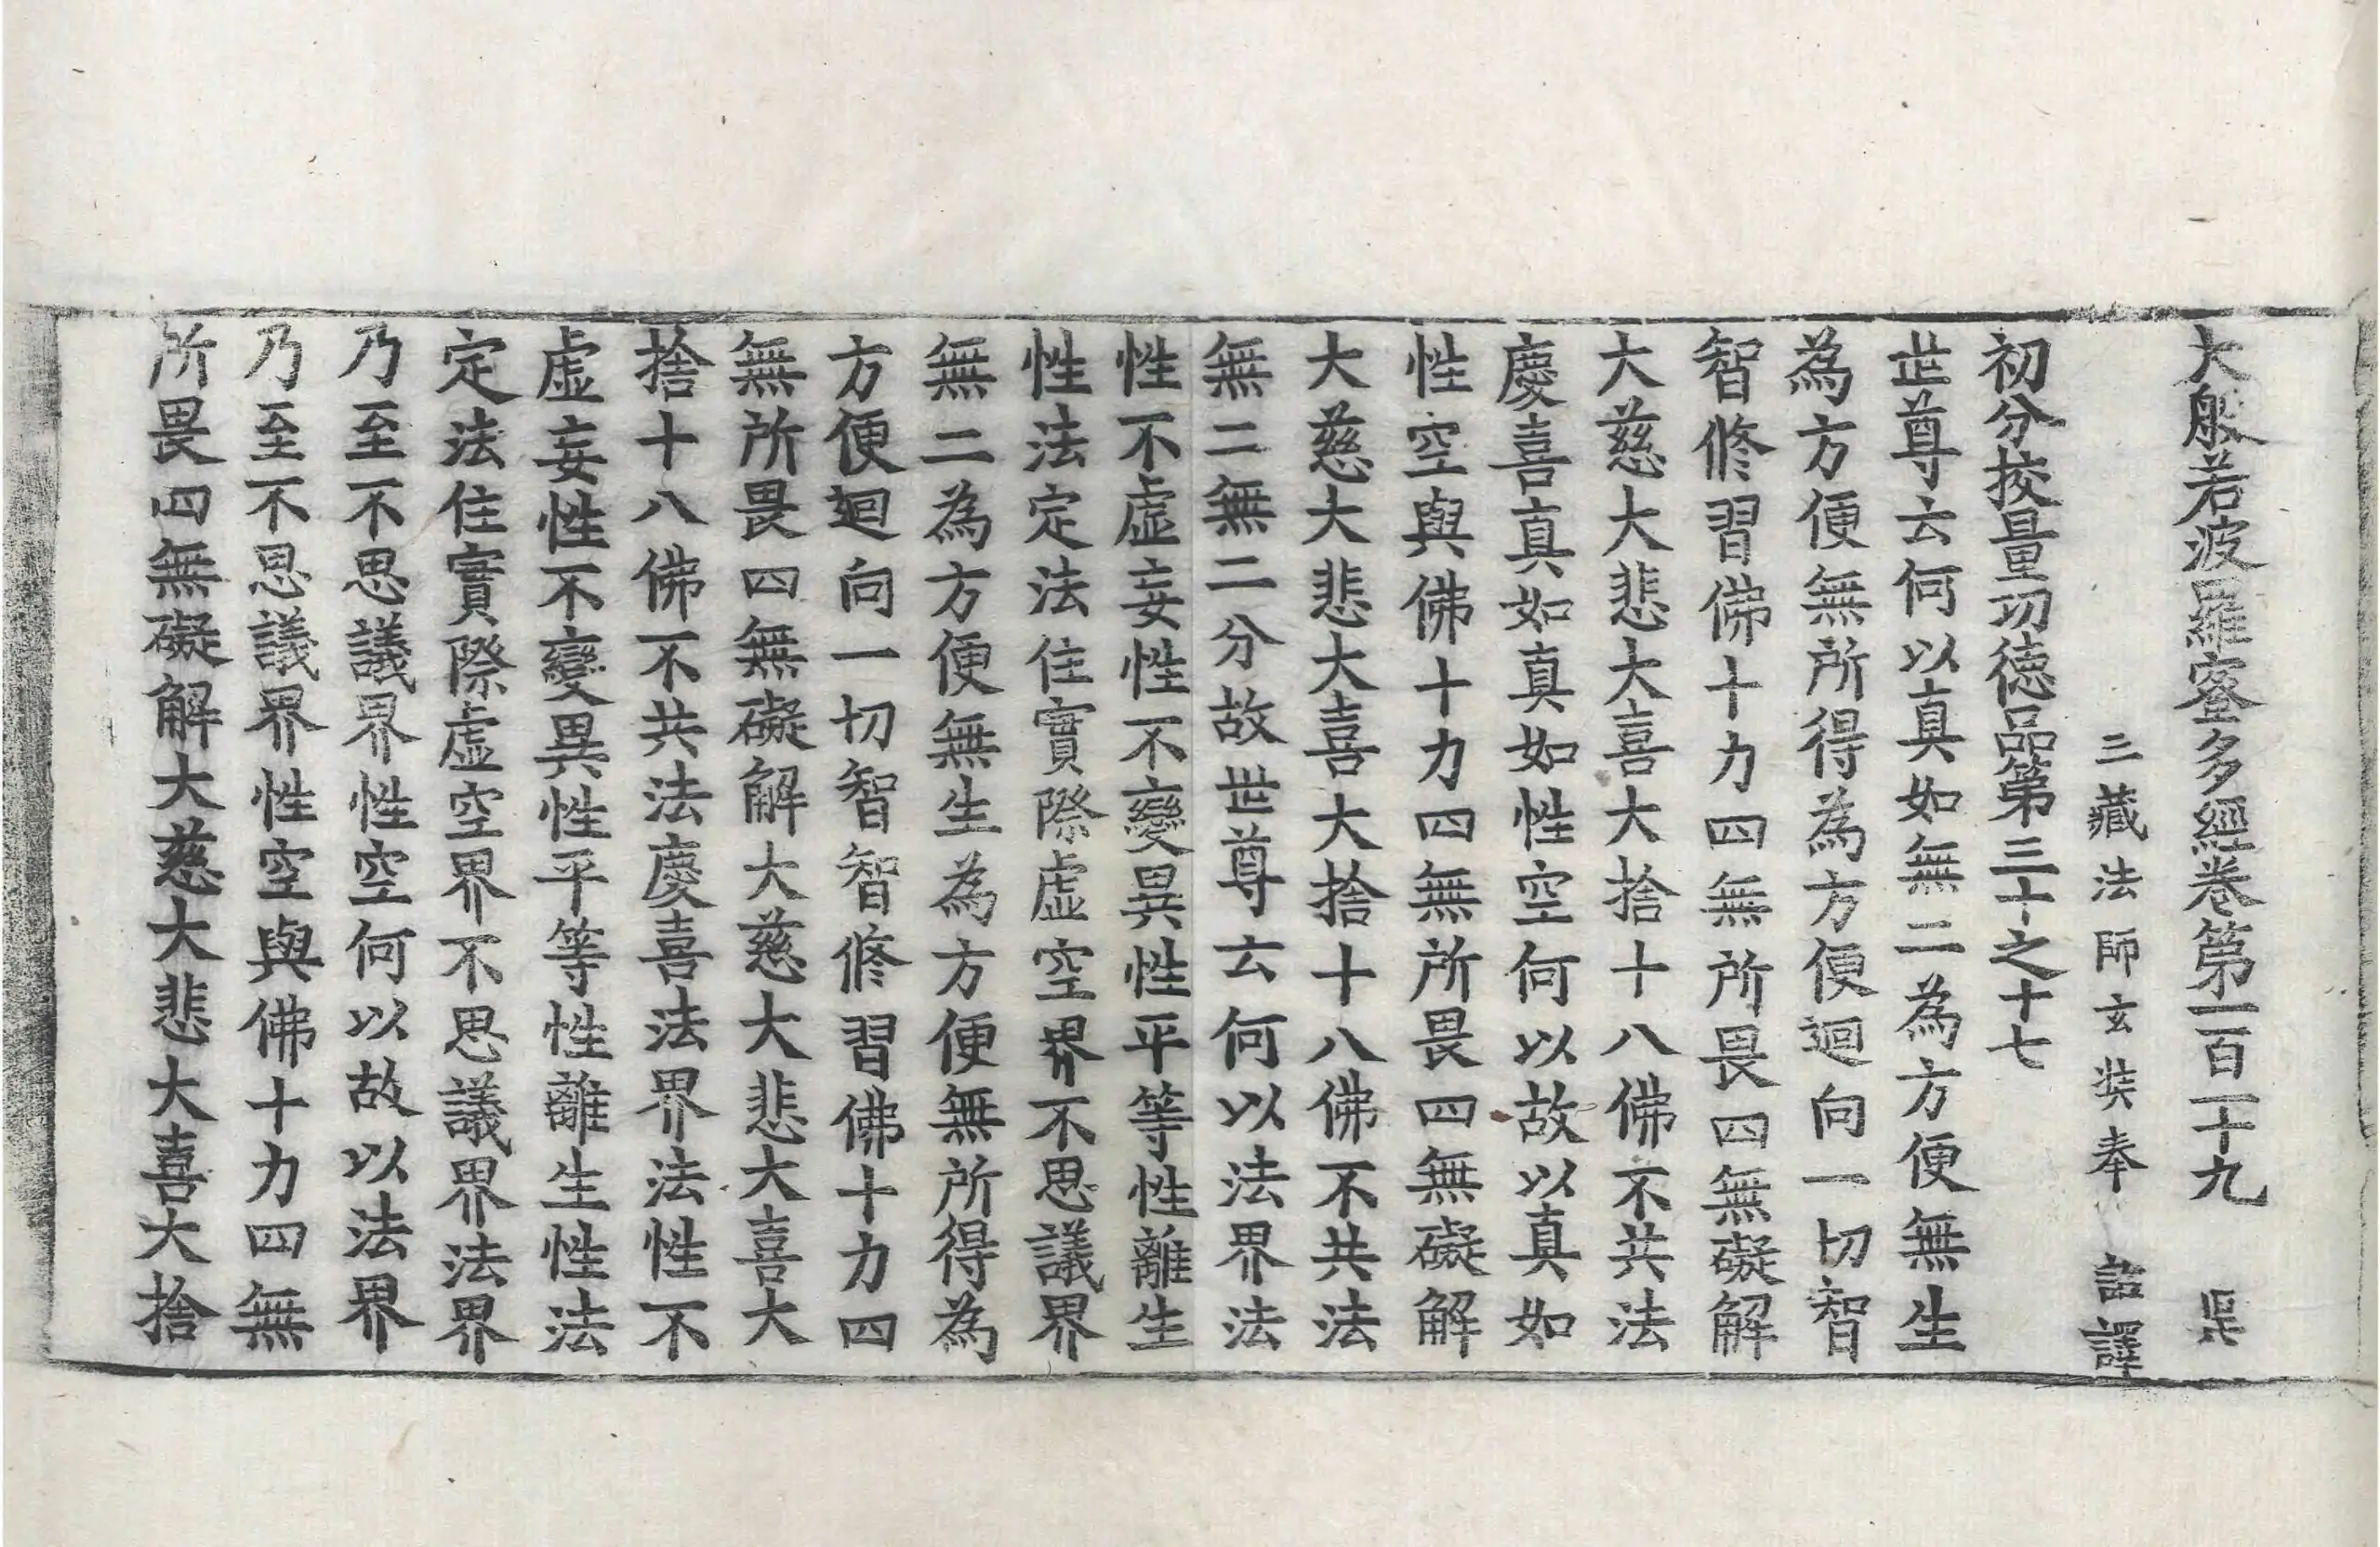 大般若波羅蜜多經卷第一百二十九 辰
三藏法師玄奘奉 詔譯
初分挍量功徳品第三十之十七
世尊云何以真如無二為方便無生
為方便無所得為方便迴向一切智
智修習佛十力四無所畏四無礙解
大慈大悲大喜大捨十八佛不共法
慶喜真如真如性空何以故以真如
性空與佛十力四無所畏四無礙解
大慈大悲大喜大捨十八佛不共法
無二無二分故世尊云何以法界法
性不虛妄性不變異性平等性離生
性法定法住實際虛空界不思議界
無二為方便無生為方便無所得為
方便迴向一切智智修習佛十力四
無所畏四無礙解大慈大悲大喜大
捨十八佛不共法慶喜法界法性不
虛妄性不變異性平等性離生性法
定法住實際虛空界不思議界法界
乃至不思議界性空何以故以法界
乃至不思議界性空與佛十力四無
所畏四無礙解大慈大悲大喜大捨